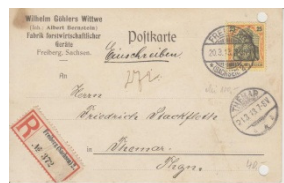 Wilhelm Göhlers Wittwe
(Inh.: Albert Bernstein)
Fabrik forstwirtschaftlicher
Geräte
Freiberg, Sachsen.
Postkarte
Einschreiben
An
Herrn
Friedrich
in
Themar
Thgn.
R
Freiberg (Sachsen)
№ 372
THEMAR
21.3.13.7-8V